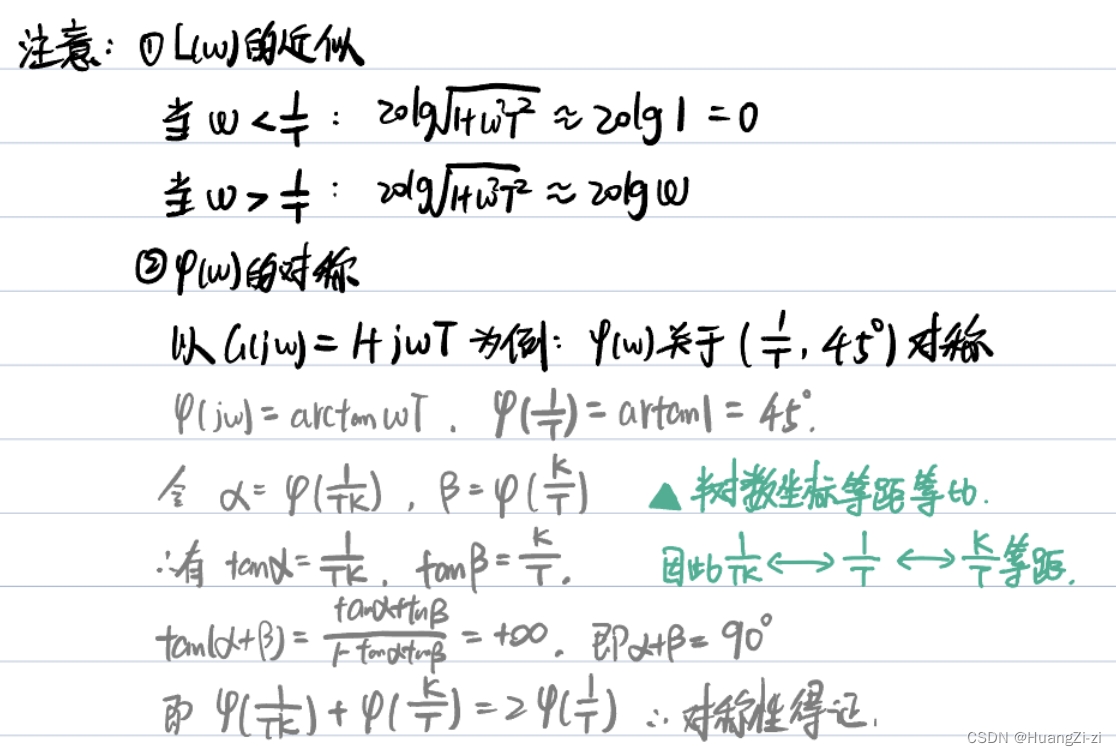 注意: ① L(ω)的近似
当 ω < 1/T : 20lg√(1+ω²T²) ≈ 20lg1 = 0
当 ω > 1/T : 20lg√(1+ω²T²) ≈ 20lgω
② φ(ω)的对称
以 G(jω) = 1+jωT 为例: φ(ω)关于 (1/T, 45°) 对称
φ(jω) = arctanωT. φ(1/T) = artan1 = 45°.
令 α = φ(1/TK), β = φ(K/T) ▲ 半对数坐标等距等比.
∴有 tanα = 1/TK, tanβ = K/T. 因此 1/TK ⟷ 1/T ⟷ K/T 等距.
tan(α+β) = (tanα+tanβ)/(1-tanαtanβ) = +∞. 即α+β = 90°
即 φ(1/TK) + φ(K/T) = 2φ(1/T) ∴ 对称性得证.
CSDN @HuangZi-zi